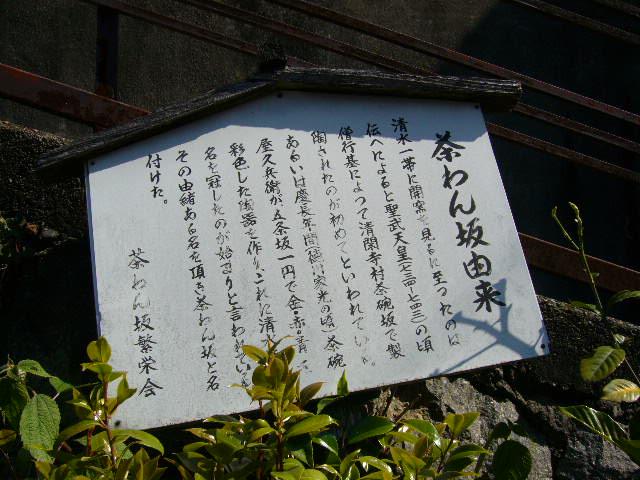 茶わん坂由来
清水一帯に開窯を見るに至ったのは
伝へによると聖武天皇(七二四-七四三)の頃
僧行基によって清閑寺村茶碗坂で製
陶されたのが初めてといわれてい
あるいは慶長年間(徳川家光の頃)茶碗
屋久兵衛が、五条坂一円で金・赤・青
彩色した陶器を作り、これに清
名を冠したのが始まりと言われてい
その由緒ある名を頂き茶わん坂と名
付けた。
茶わん坂繁栄会